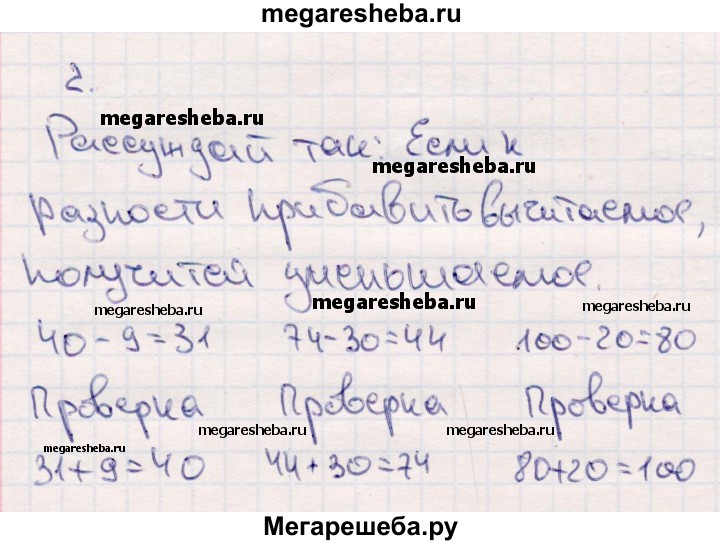 megaresheba.ru
2.
megaresheba.ru
Рассуждай так: Если к
megaresheba.ru
разности прибавить вычитаемое,
получится уменьшаемое.
megaresheba.ru megaresheba.ru megaresheba.ru
40-9=31 74-30=44 100-20=80
Проверка Проверка Проверка
megaresheba.ru megaresheba.ru megaresheba.ru
31+9=40 44+30=74 80+20=100
Мегарешеба.ру